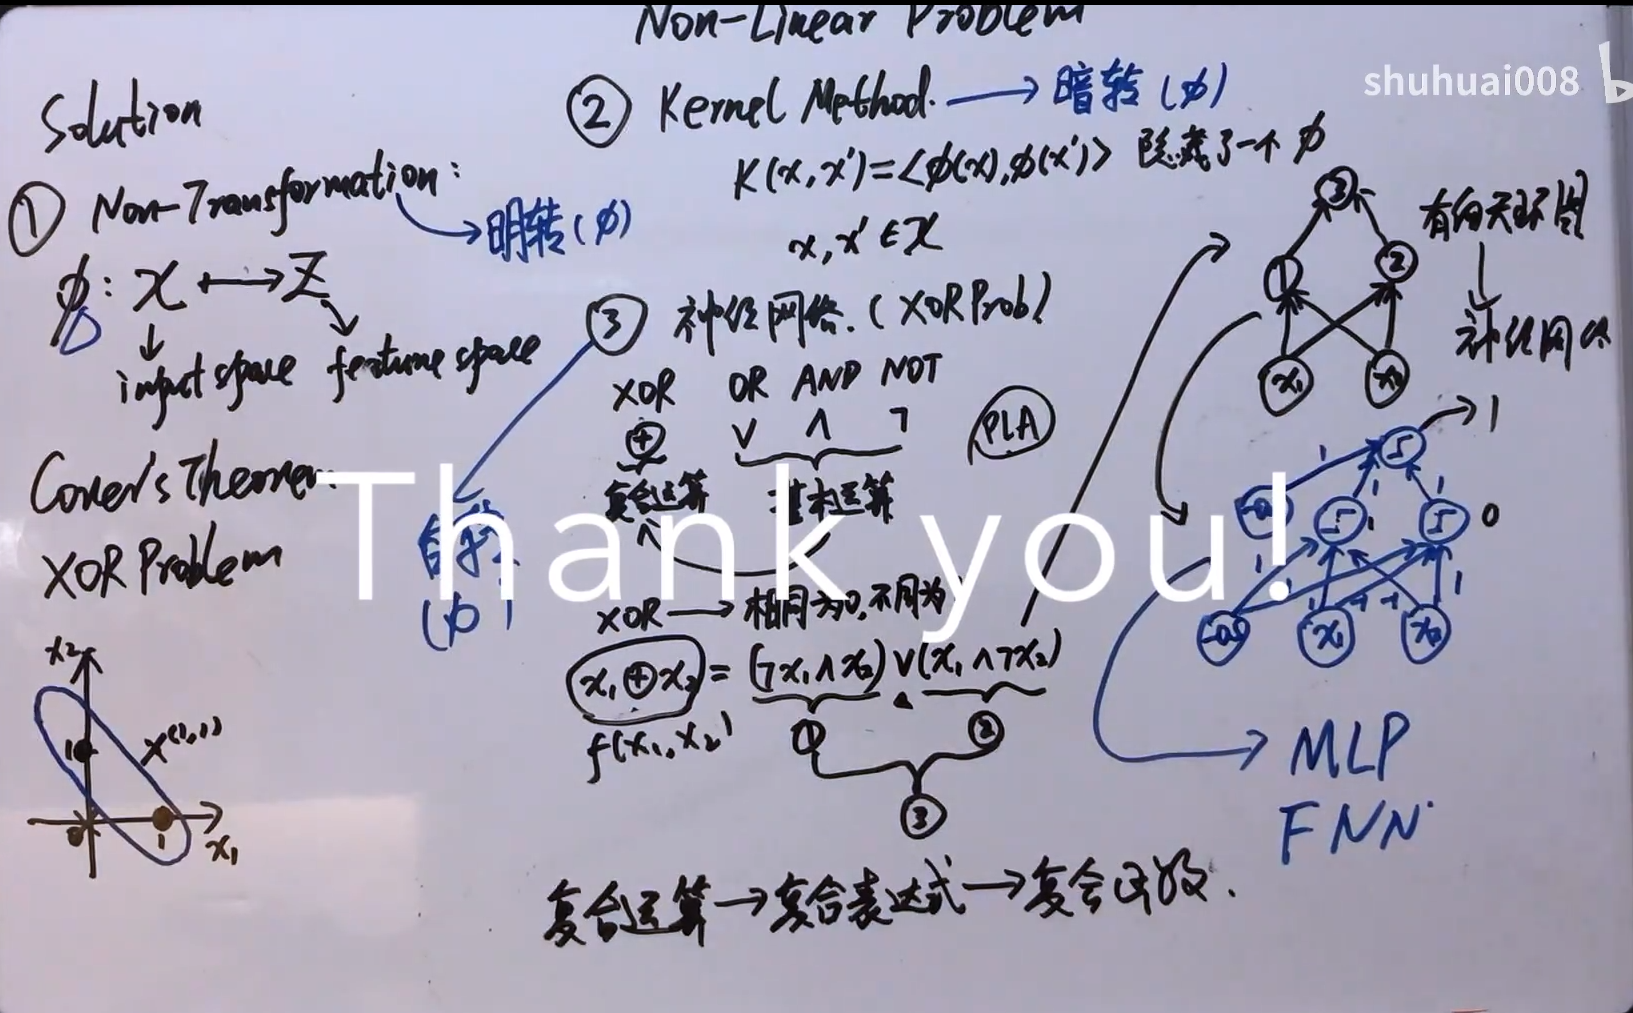 Non-Linear Problem
shuhuai008
Solution
① Non-Transformation:
明转(φ)
φ: X ⟼ Z
input space feature space
Cover's Theorem.
XOR Problem
x₂
1
x(1,1)
0 1 x₁
② Kernel Method. → 暗转(φ)
K(x,x')=<φ(x),φ(x')> 隐藏了一个φ
x,x'∈X
③ 神经网络.(XOR Prob)
(φ)
XOR OR AND NOT
⊕ ∨ ∧ ¬
复合运算 基本运算
PLA
Thank you!
XOR → 相同为0,不同为
x₁⊕x₂ = (¬x₁∧x₂)∨(x₁∧¬x₂)
f(x₁,x₂) ① ②
③
复合运算→复合表达式→复合函数.
③
① ②
x₁ x₂
有向无环图
↓
神经网络
1
1
1 1
1 0
1 1 1 -1 -1 1
x₁ x₂
MLP
FNN